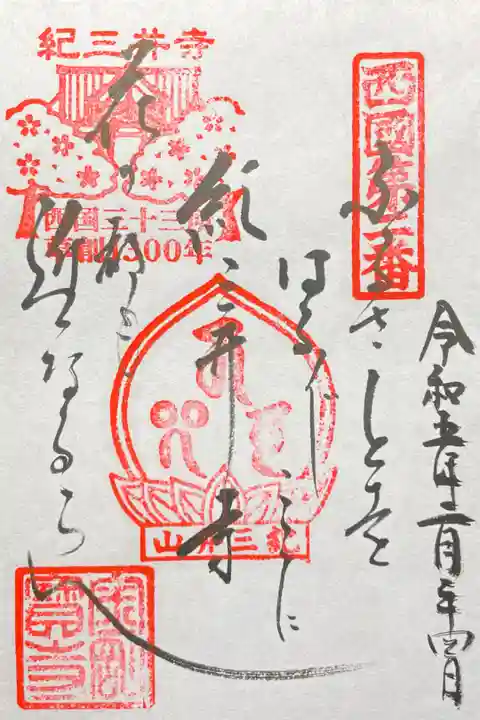 令和五年二月二十四日
西國第二番
ふるさとを
はる〲こゝに
紀三井寺
花の都も
近くなるらん
紀三井寺
西国三十三所
草創1300年
紀三井山